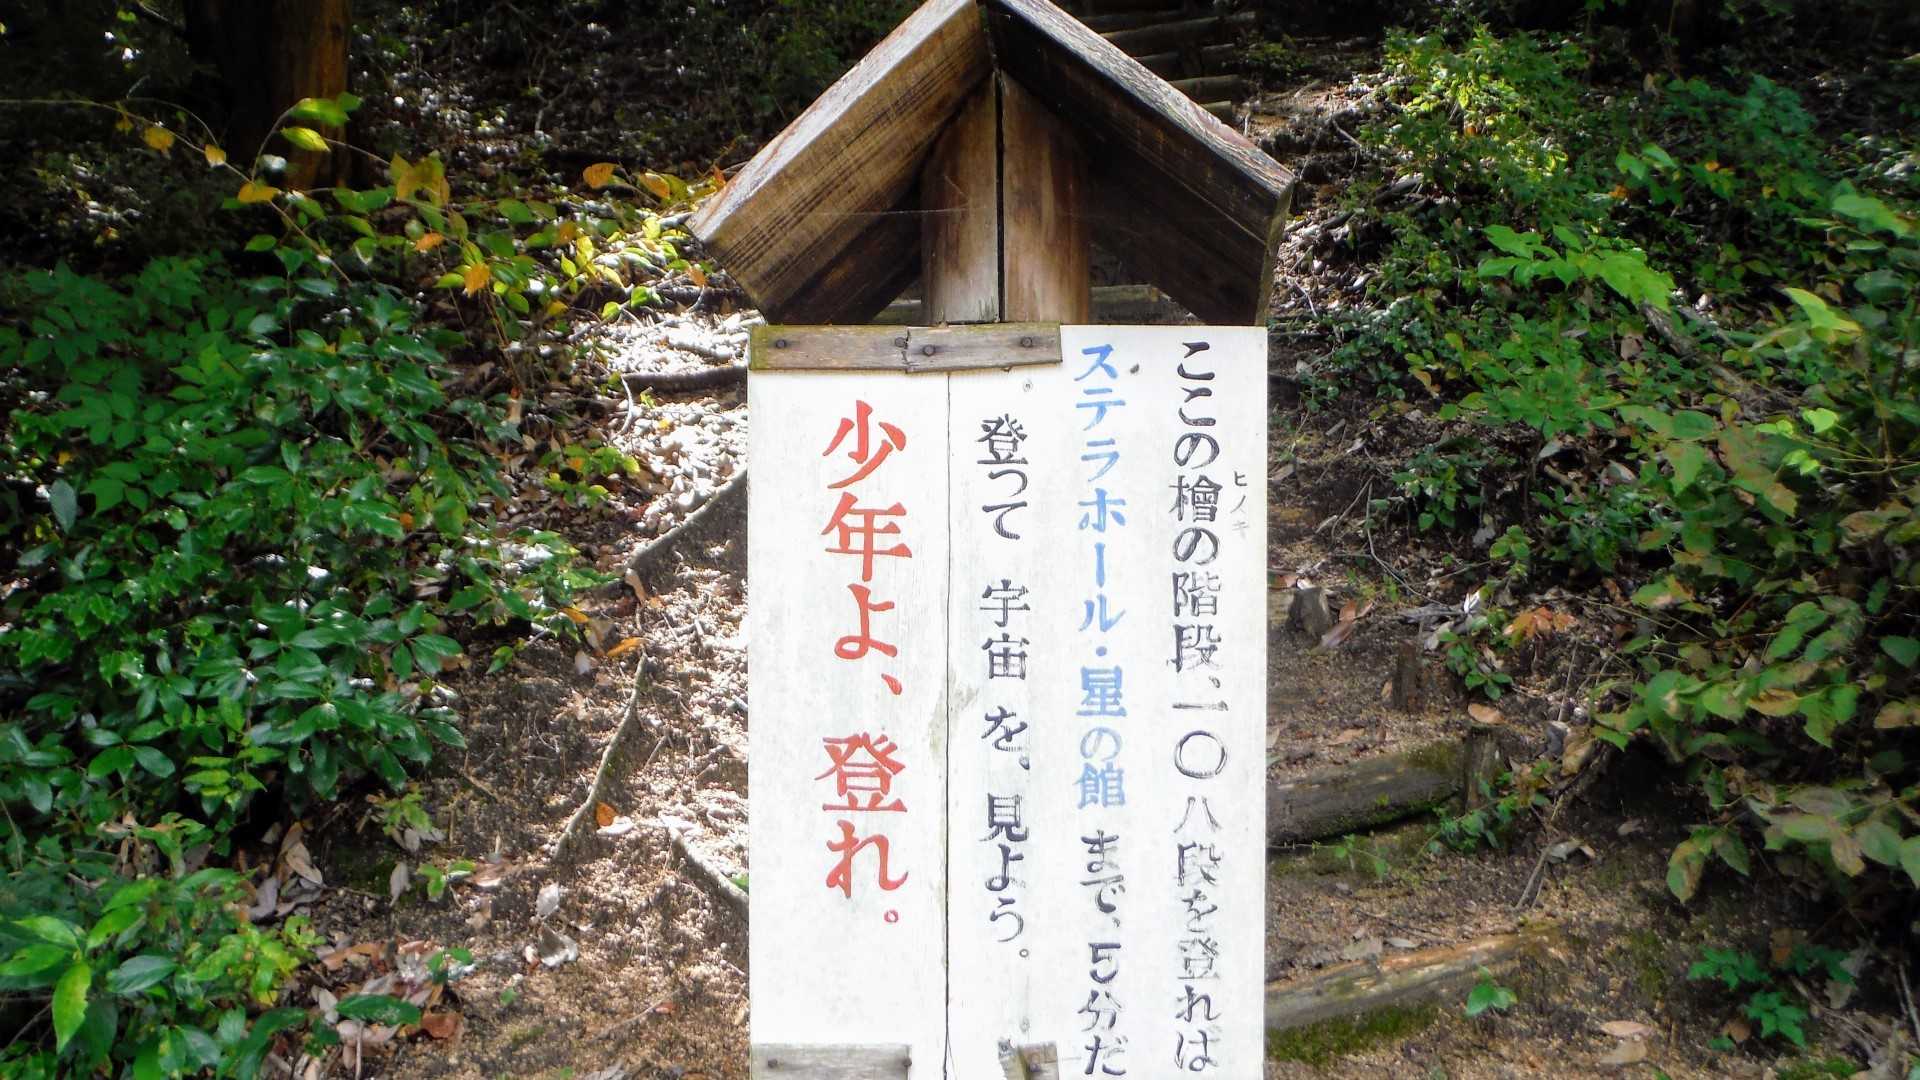 ここの檜の階段、一〇八段を登れば
ヒノキ
ステラホール・星の館まで、5分だ
。登って 宇宙を、見よう。
少年よ、登れ。